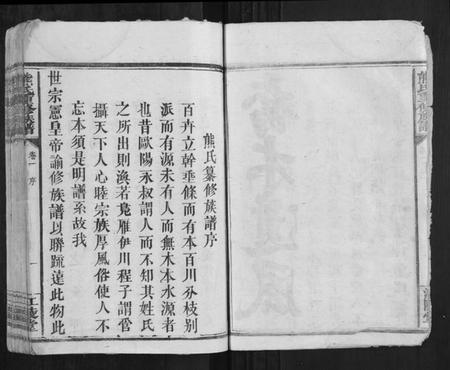 熊氏纂修族譜序
百卉立幹垂條而有本百川分枝別
派而有源未有人而無木本水源者
也昔歐陽永叔謂人而不知其姓氏
之所出則渙若鳧雁伊川程子謂管
攝天下人心睦宗族厚風俗使人不
忘本須是明譜系故我
世宗憲皇帝諭修族譜以聯疏遠此物此
熊氏重修族譜
卷一 序
一
江陵堂